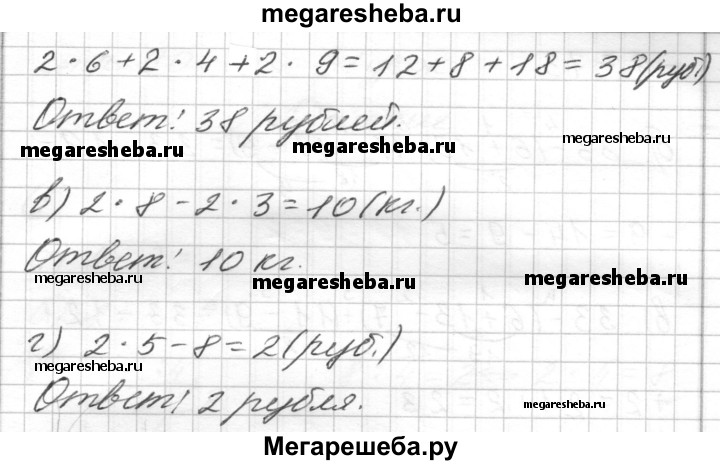 megaresheba.ru
2 · 6 + 2 · 4 + 2 · 9 = 12 + 8 + 18 = 38 (руб.)
Ответ! 38 рублей.
megaresheba.ru megaresheba.ru megaresheba.ru
в) 2 · 8 - 2 · 3 = 10 (кг.)
Ответ! 10 кг.
megaresheba.ru megaresheba.ru megaresheba.ru
г) 2 · 5 - 8 = 2 (руб.)
megaresheba.ru
Ответ! 2 рубля.
megaresheba.ru
Мегарешеба.ру